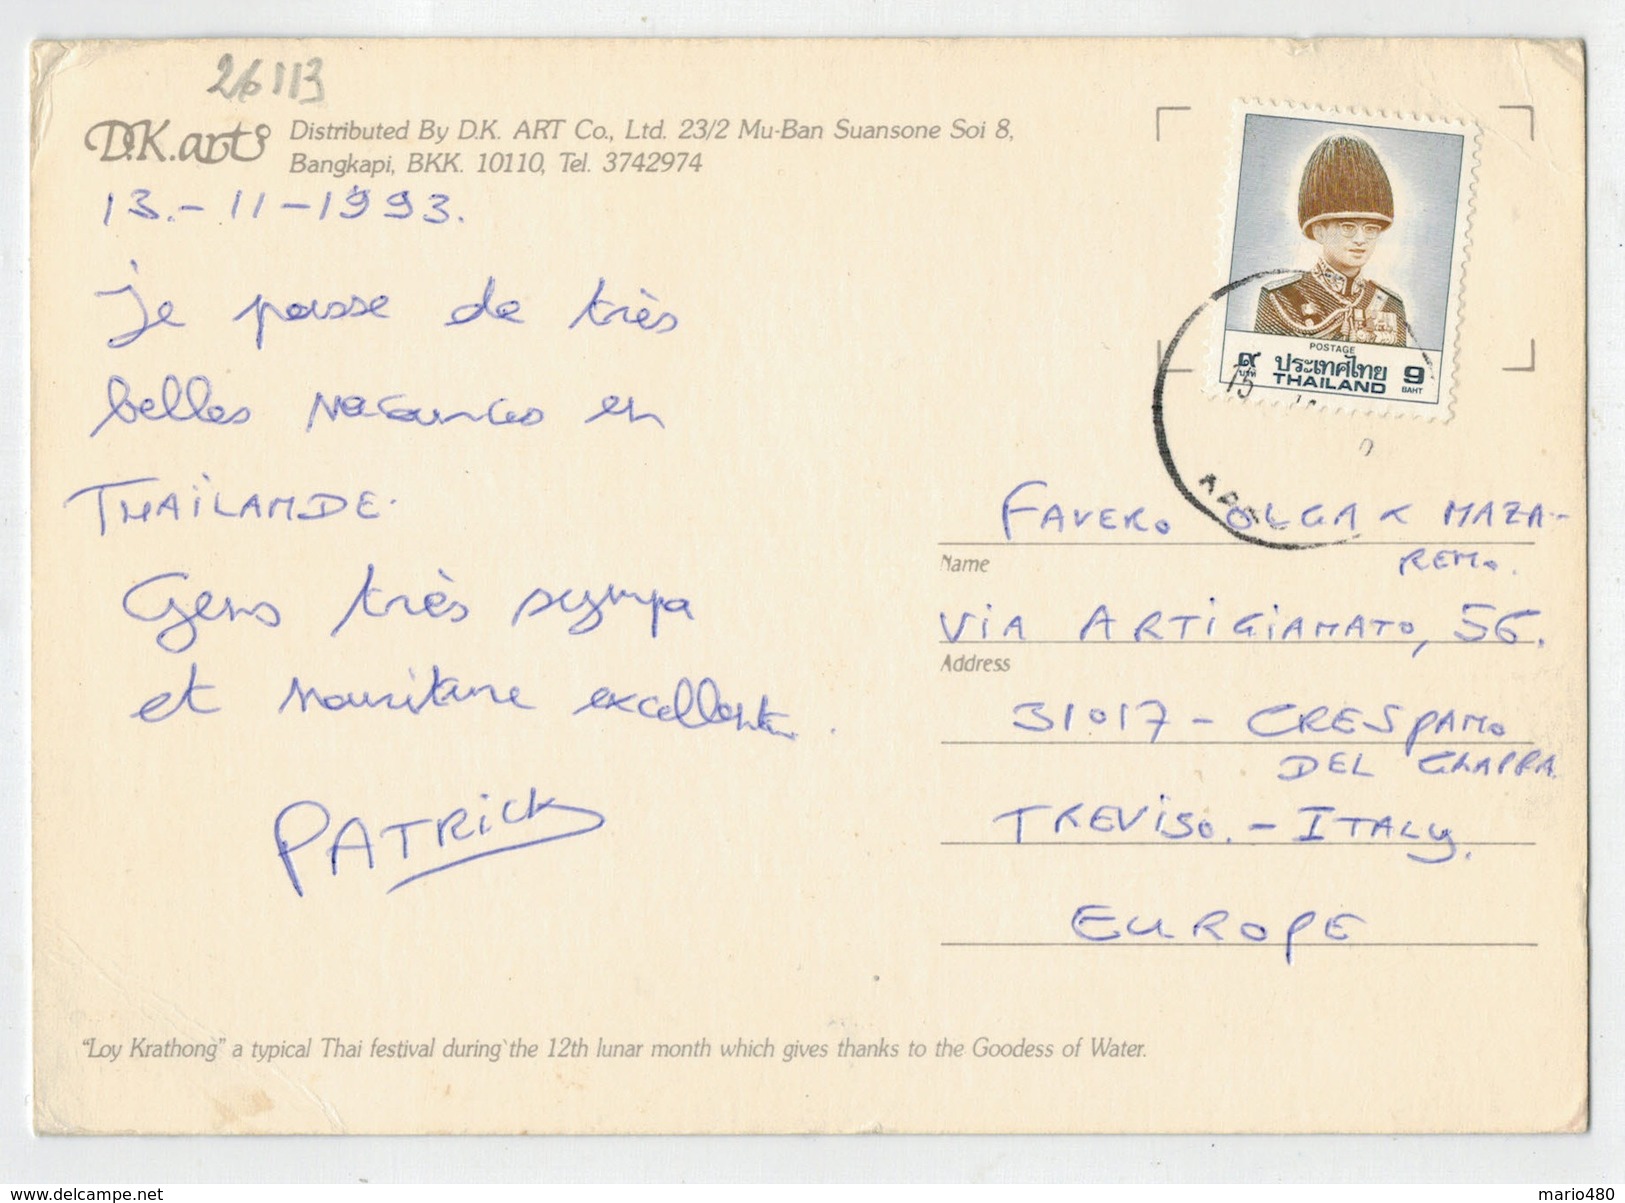 26113
D.K.arts
Distributed By D.K. ART Co., Ltd. 23/2 Mu-Ban Suansone Soi 8,
Bangkapi, BKK. 10110, Tel. 3742974
13.-11-1993.
Je passe de très
belles vacances en
THAÏLANDE.
Gens très sympa
et nouriture excellente.
PATRick
POSTAGE
๙ บาท ประเทศไทย 9 BAHT
THAILAND
15
FAVERO OLGA & MAZA-
REMO.
Name
ViA ARTiGiANATO, 56.
Address
31017 - CRESPANO
DEL GRAPPA
TREViSO. - ITALy.
EUROPE
"Loy Krathong" a typical Thai festival during the 12th lunar month which gives thanks to the Goodess of Water.
www.delcampe.net
mario480